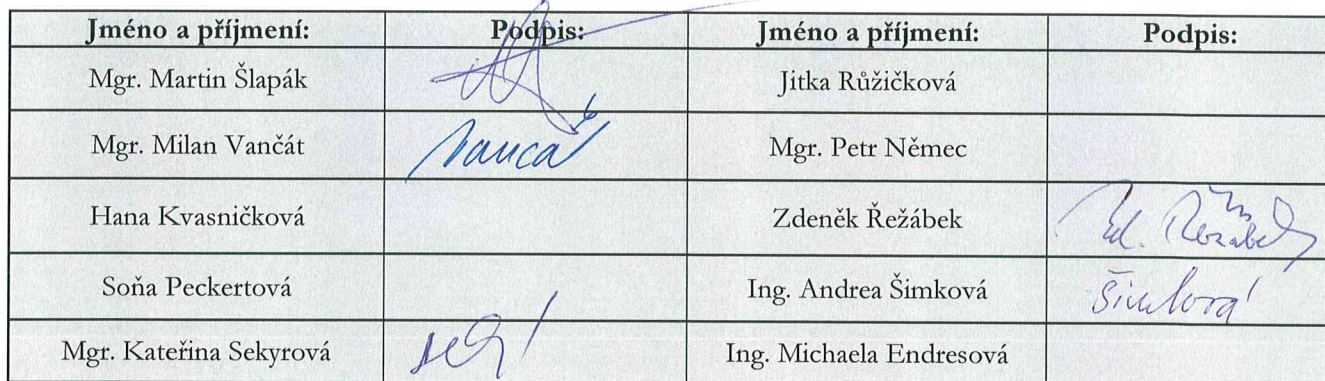 Jméno a příjmení: Podpis: Jméno a příjmení: Podpis:
Mgr. Martin Šlapák Jitka Růžičková
Mgr. Milan Vančát Vančát Mgr. Petr Němec
Hana Kvasničková Zdeněk Řežábek Zd. Řežábek
Soňa Peckertová Ing. Andrea Šimková Šimková
Mgr. Kateřina Sekyrová Ing. Michaela Endresová